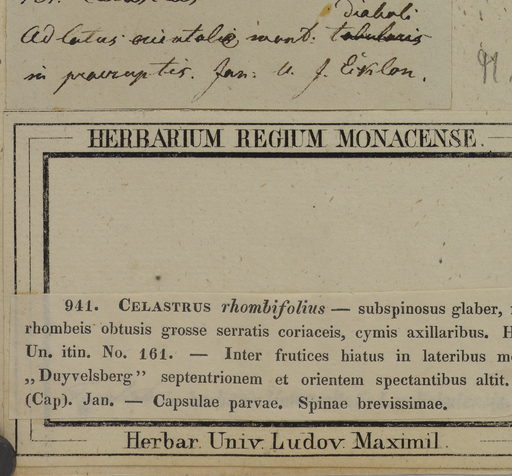 diaboli
Ad latus orientale mont: tabularis
in praeruptis. Jan: U. J. Eiklon.
HERBARIUM REGIUM MONACENSE.
941. CELASTRUS rhombifolius — subspinosus glaber,
rhombeis obtusis grosse serratis coriaceis, cymis axillaribus. H
Un. itin. No. 161. — Inter frutices hiatus in lateribus
„Duyvelsberg” septentrionem et orientem spectantibus altit.
(Cap). Jan. — Capsulae parvae. Spinae brevissimae.
Herbar. Univ. Ludov. Maximil.